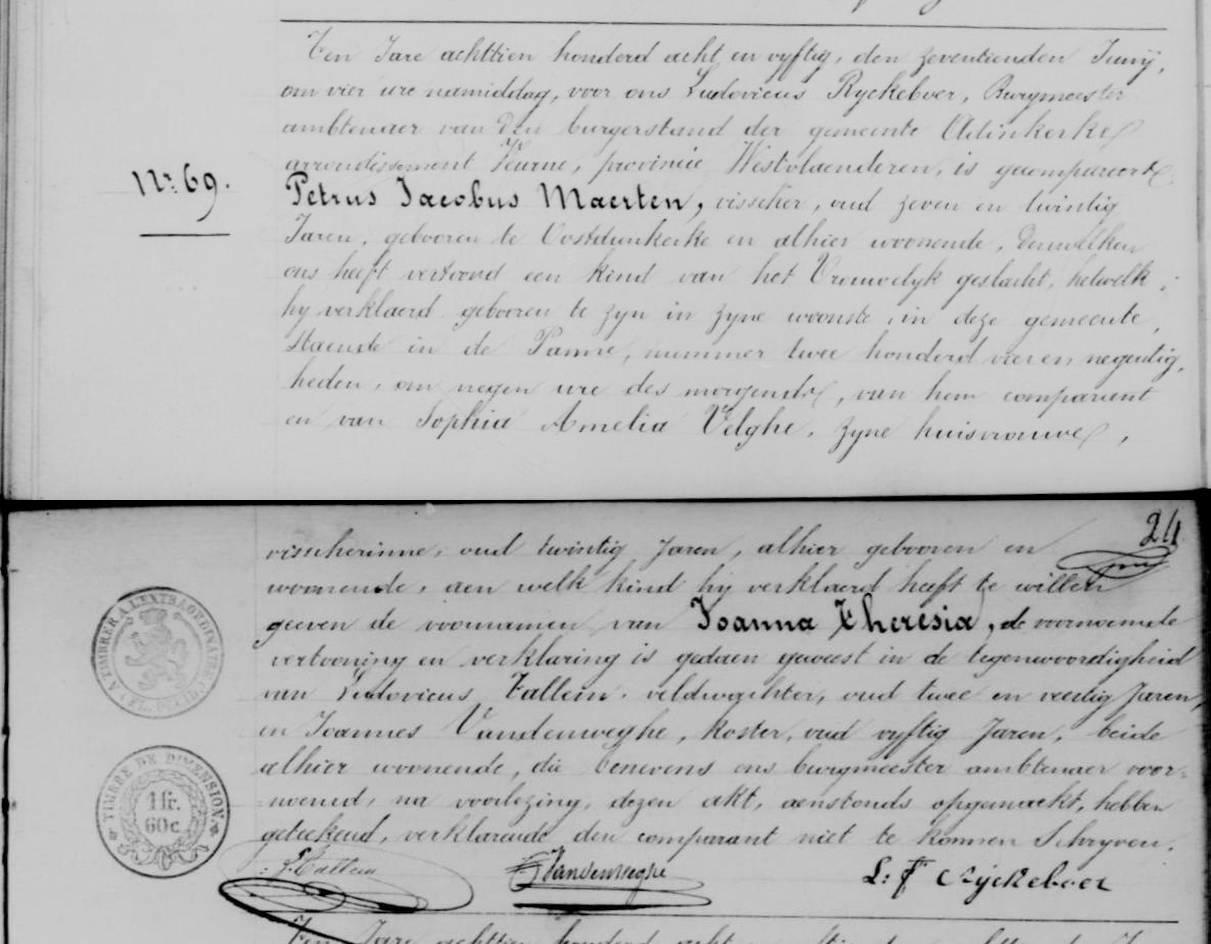 Ten Jare achttien honderd acht en vyftig, den zeventienden Junÿ,
om vier ure namiddag, voor ons Ludovicus Ryckeboer, Burgmeester
ambtenaer van den burgerstand der gemeente Adinkerke
arrondissement Veurne, provincie Westvlaenderen, is gecompareert
N.r 69.
Petrus Jacobus Maerten, visscher, oud zeven en twintig
Jaren, gebooren te Oostdunkerke en alhier woonende, denwelken
ons heeft vertoond een kind van het Vrouwelyk geslacht, hetwelk
hy verklaerd gebooren te zyn in zyne woonste, in deze gemeente,
staende in de Panne, nummer twee honderd vier en negentig,
heden, om negen ure des morgends, van hem comparant
en van Sophia Amelia Velghe, zyne huisvrouwe,
24
visscherinne, oud twintig Jaren, alhier gebooren en
woonende, aen welk kind hy verklaerd heeft te willen
geeven de voornamen van Joanna Theresia, de voornoemde
vertooning en verklaring is gedaen geweest in de tegenwoordigheid
van Ludovicus Tallein, veldwachter, oud twee en veertig Jaren,
en Joannes Vandenweghe, koster, oud vyftig Jaren, beide
alhier woonende, die benevens ons burgmeester ambtenaer voor-
noemd, na voorlezing, dezen akt, aenstonds opgemaekt, hebben
geteekend, verklarende den comparant niet te konnen Schryven.
A TIMBRER A L'EXTRAORDINAIRE
TIMBRE DE DIMENSION
1 fr.
60 c.
Tallein
Vandenweghe
L: F Ryckeboer
Ten Jare achttien honderd acht